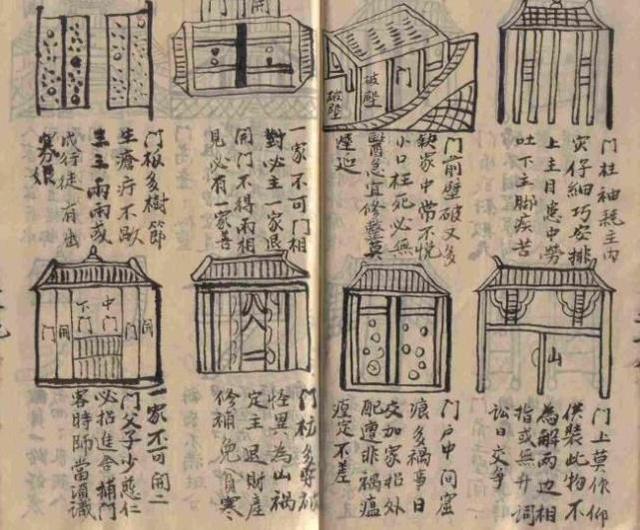 门
破壁
破壁
门柱
主内
灾仔細巧安排
上主目患中勞
吐下主脚疾苦
门前壁破又多
缺家中常不悦
小口枉死必無
醫急宜修整莫
遲延
一家不可门相
對必主一家退
開门不得兩相
見必有一家害
门板多樹節
生瘡疔不歇
三三兩兩或
成行徒有出
寡娘
山
開门
中门
下门
開门
门上莫作仰
供裝此物不
為解两边相
指或無升詞
訟日交争
门户中间窟
痕多禍事日
交加家招外
配遭非禍瘟
瘟定不差
多穿破
怪異為山禍
定主退財產
修補免貧寒
一家不可開二
门父子少慈仁
必招進舍捕门
客時師當湏識